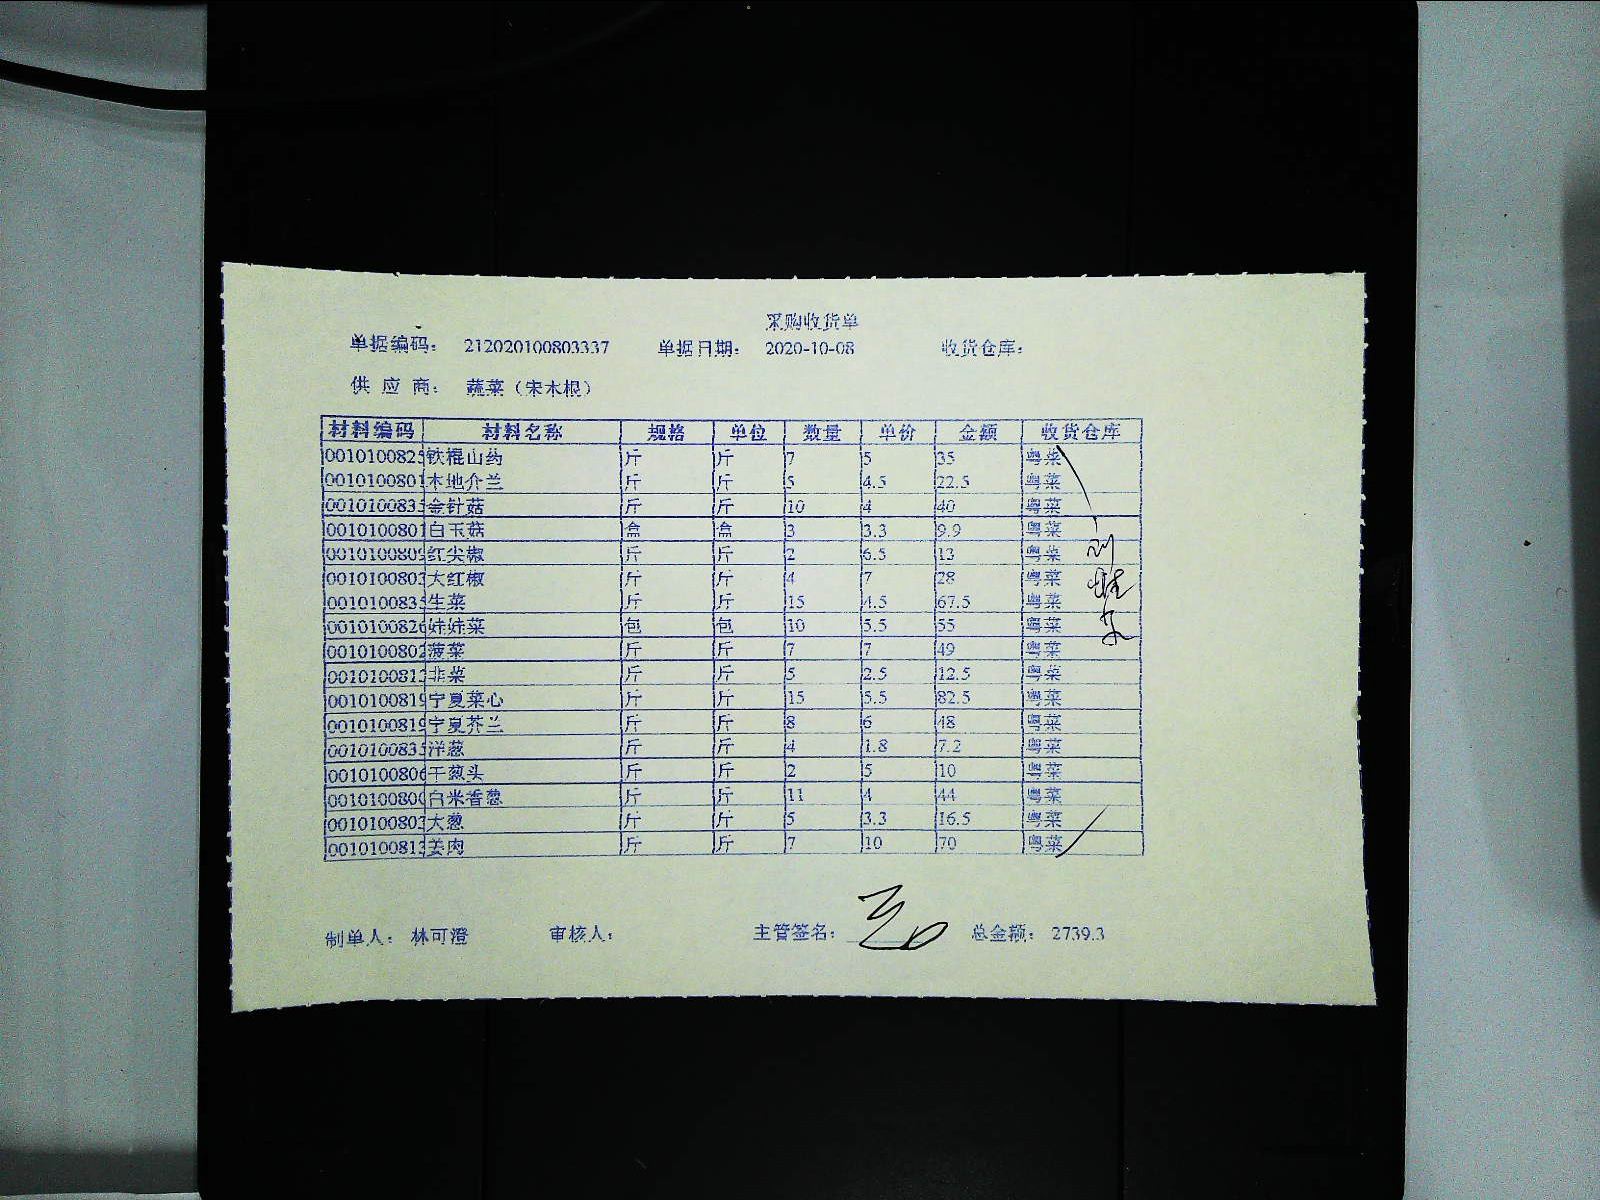 采购收货单
单据编码： 212020100803337 单据日期： 2020-10-08 收货仓库：
供 应 商： 蔬菜（宋木根）
材料编码 材料名称 规格 单位 数量 单价 金额 收货仓库
0010100825 铁棍山药 斤 斤 7 5 35 粤菜
0010100801 本地介兰 斤 斤 5 4.5 22.5 粤菜
0010100835 金针菇 斤 斤 10 4 40 粤菜
0010100801 白玉菇 盒 盒 3 3.3 9.9 粤菜
0010100809 红尖椒 斤 斤 2 6.5 13 粤菜
0010100803 大红椒 斤 斤 4 7 28 粤菜
0010100835 生菜 斤 斤 15 4.5 67.5 粤菜
0010100826 娃娃菜 包 包 10 5.5 55 粤菜
0010100802 菠菜 斤 斤 7 7 49 粤菜
0010100812 韭菜 斤 斤 5 2.5 12.5 粤菜
0010100819 宁夏菜心 斤 斤 15 5.5 82.5 粤菜
0010100819 宁夏芥兰 斤 斤 8 6 48 粤菜
0010100835 洋葱 斤 斤 4 1.8 7.2 粤菜
0010100806 干葱头 斤 斤 2 5 10 粤菜
0010100800 白米香葱 斤 斤 11 4 44 粤菜
0010100803 大葱 斤 斤 5 3.3 16.5 粤菜
0010100813 姜肉 斤 斤 7 10 70 粤菜
制单人： 林可澄 审核人： 主管签名： 总金额： 2739.3